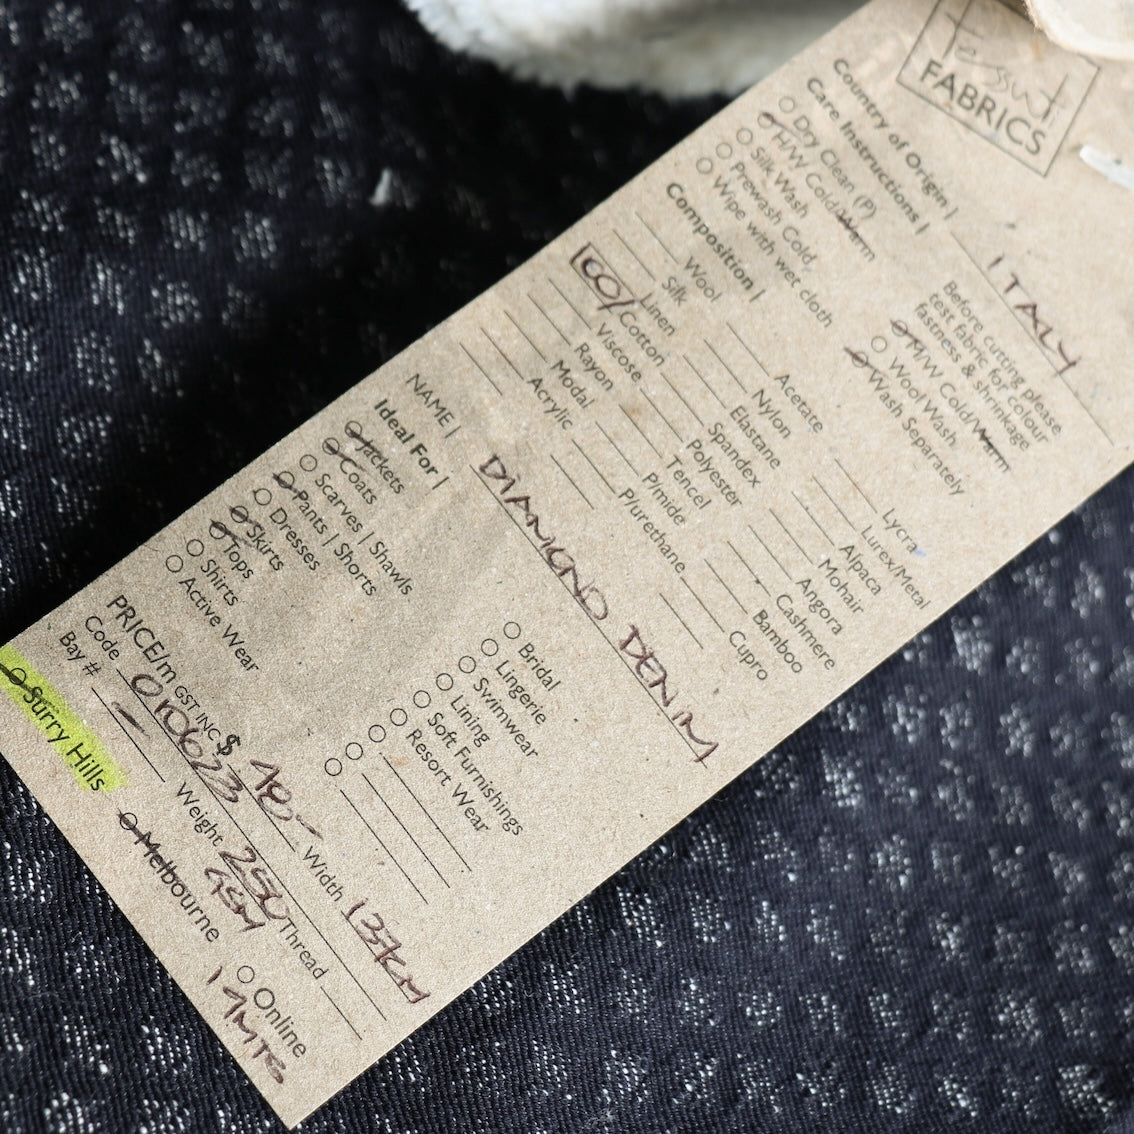 Tessuti
FABRICS
Country of Origin | ITALY
Care Instructions |
Dry Clean (P)
H/W Cold/Warm
Silk Wash
Prewash Cold,
Wipe with wet cloth
Before cutting please
test fabric for colour
fastness & shrinkage
M/W Cold/Warm
Wool Wash
Wash Separately
Composition |
Wool
Silk
Linen
100% Cotton
Viscose
Rayon
Modal
Acrylic
Acetate
Nylon
Elastane
Spandex
Polyester
Tencel
P/mide
P/urethane
Lycra
Lurex/Metal
Alpaca
Mohair
Angora
Cashmere
Bamboo
Cupro
NAME | DIAMOND DENIM
Ideal For |
Jackets
Coats
Scarves | Shawls
Pants | Shorts
Dresses
Skirts
Tops
Shirts
Active Wear
Bridal
Lingerie
Swimwear
Lining
Soft Furnishings
Resort Wear
PRICE/m GST INC $ 48 Width 137cm
Code 010623 Weight 250 GSM Thread
Bay # -
Surry Hills Melbourne Online
19MTS